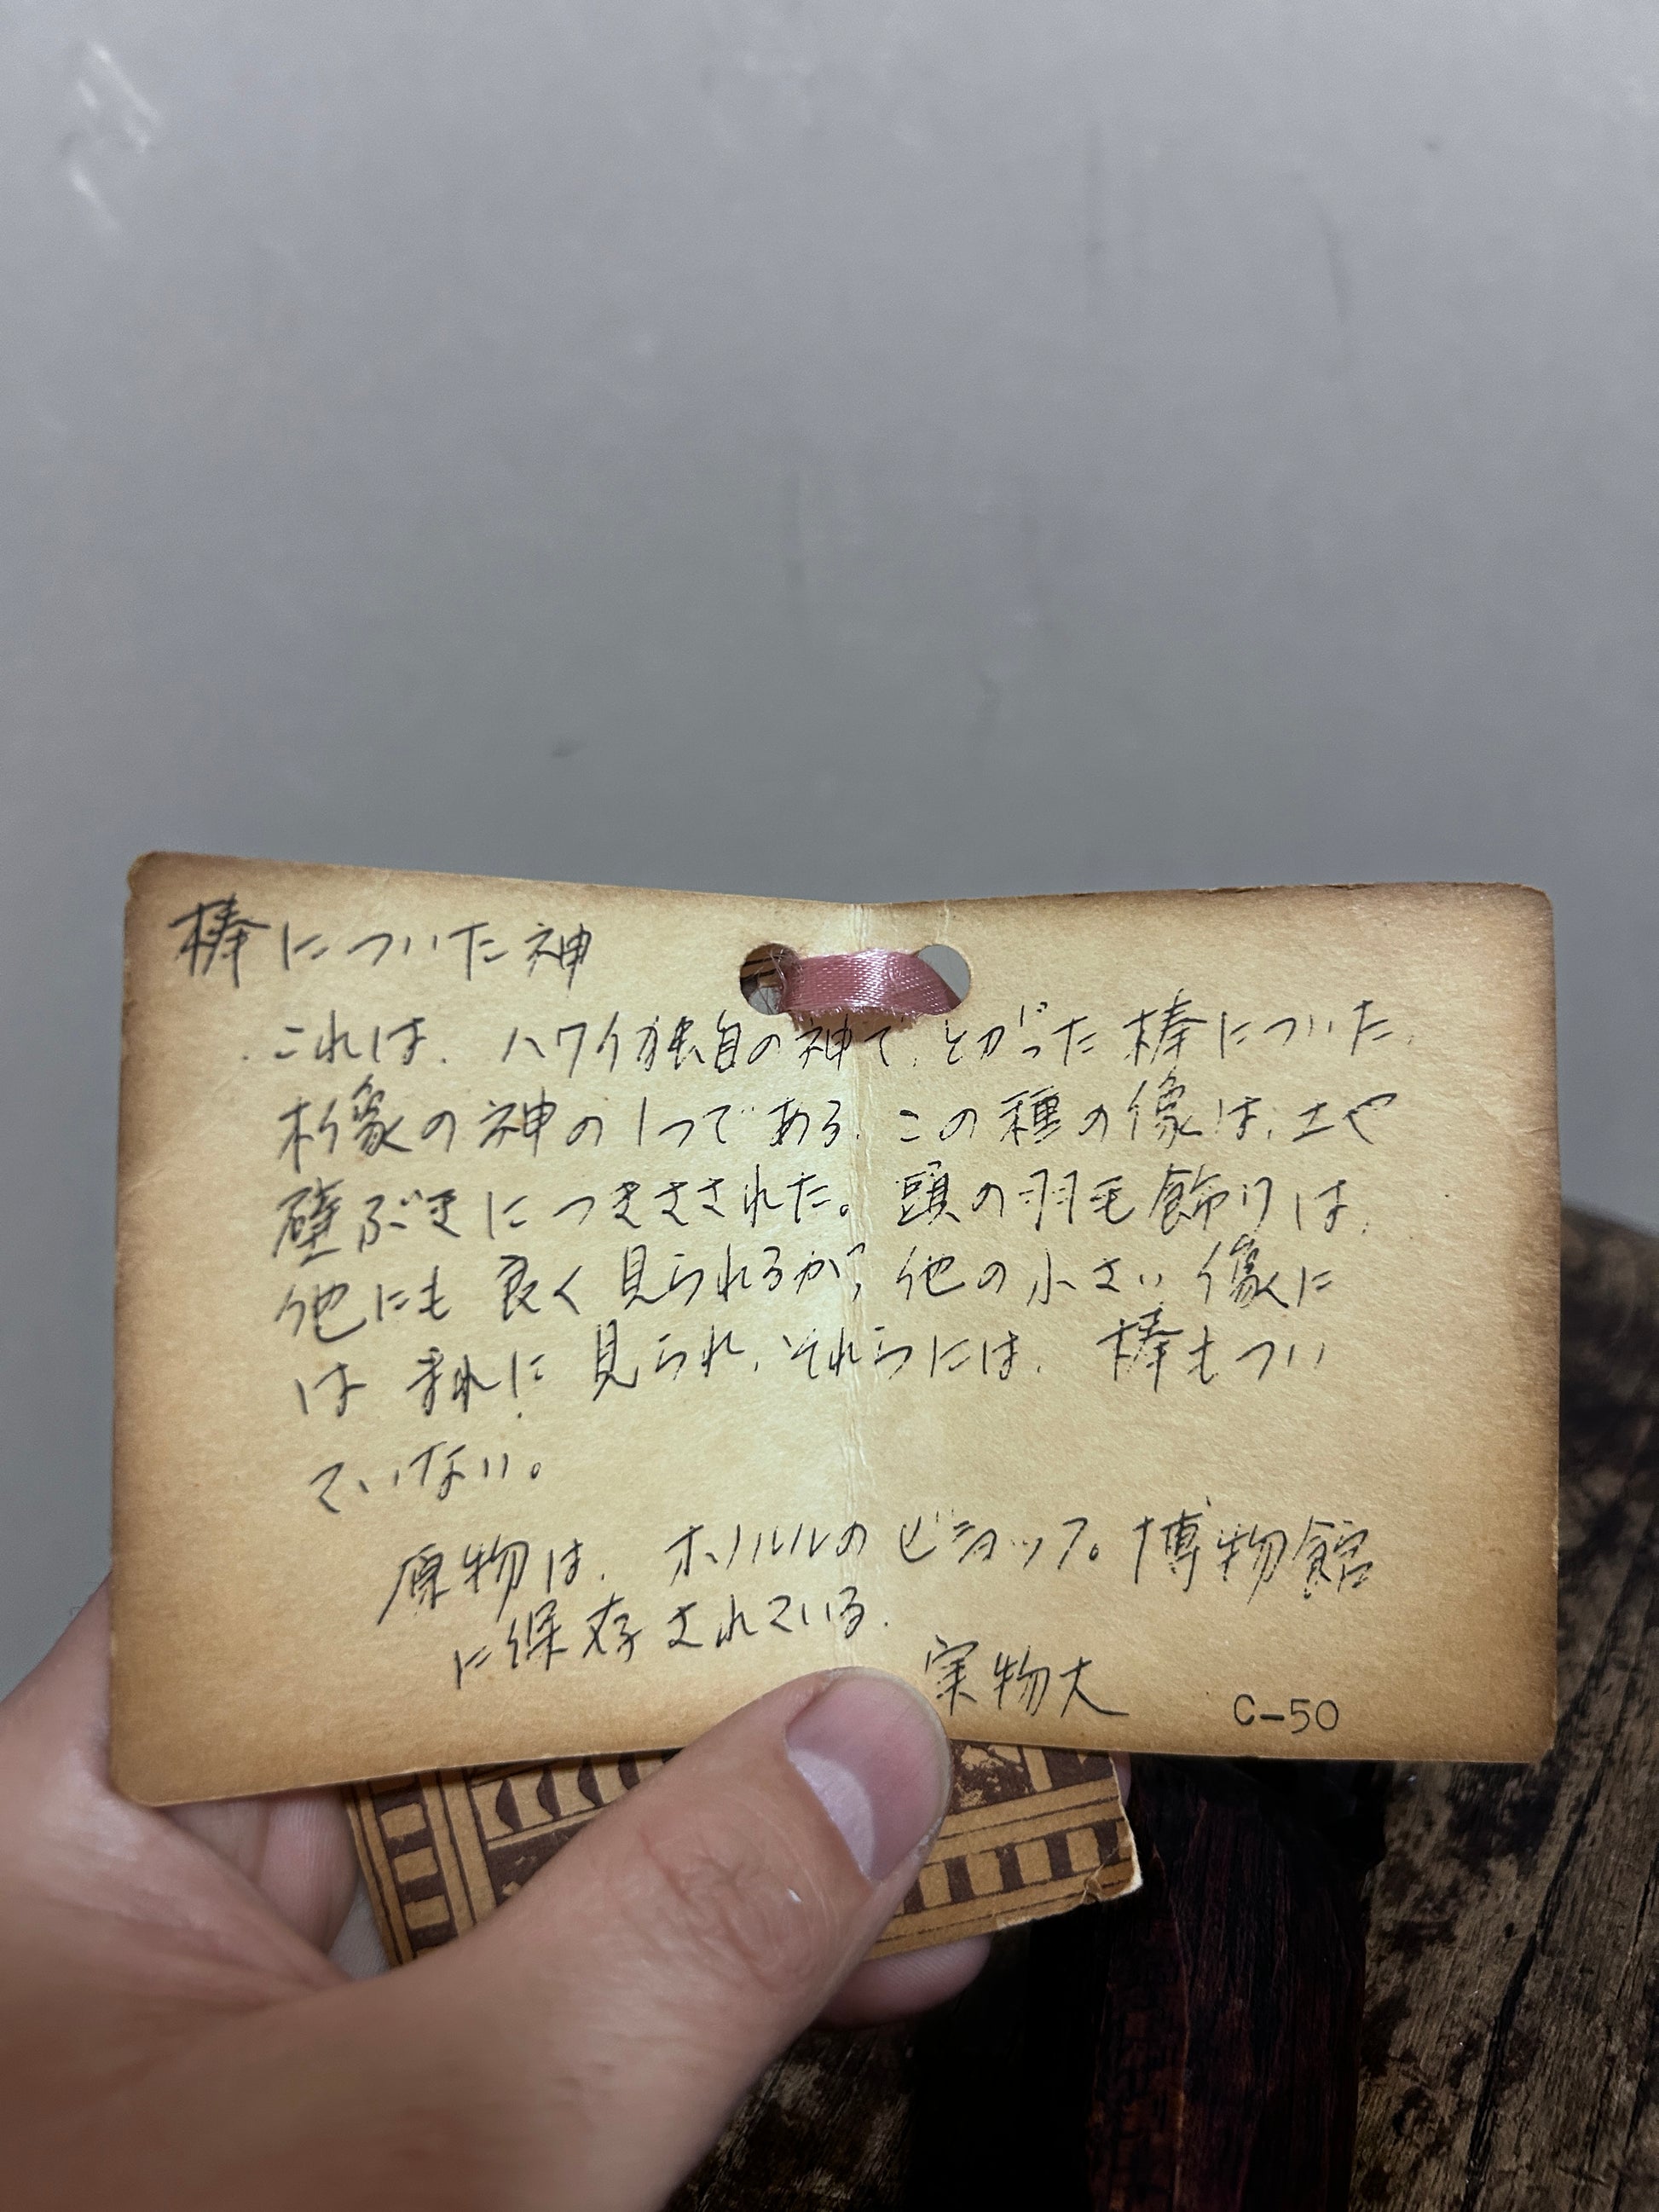 棒についた神
これは、ハワイ独自の神で、とがった棒についた、
木像の神の1つである。この種の像は、土や
壁ぶきにつきさされた。頭の羽毛飾りは、
他にも良く見られるが、他の小さい像に
はまれに見られ、それらには、棒もつい
ていない。
原物は、ホノルルのビショップ。博物館
に保存されている。
実物大
C-50